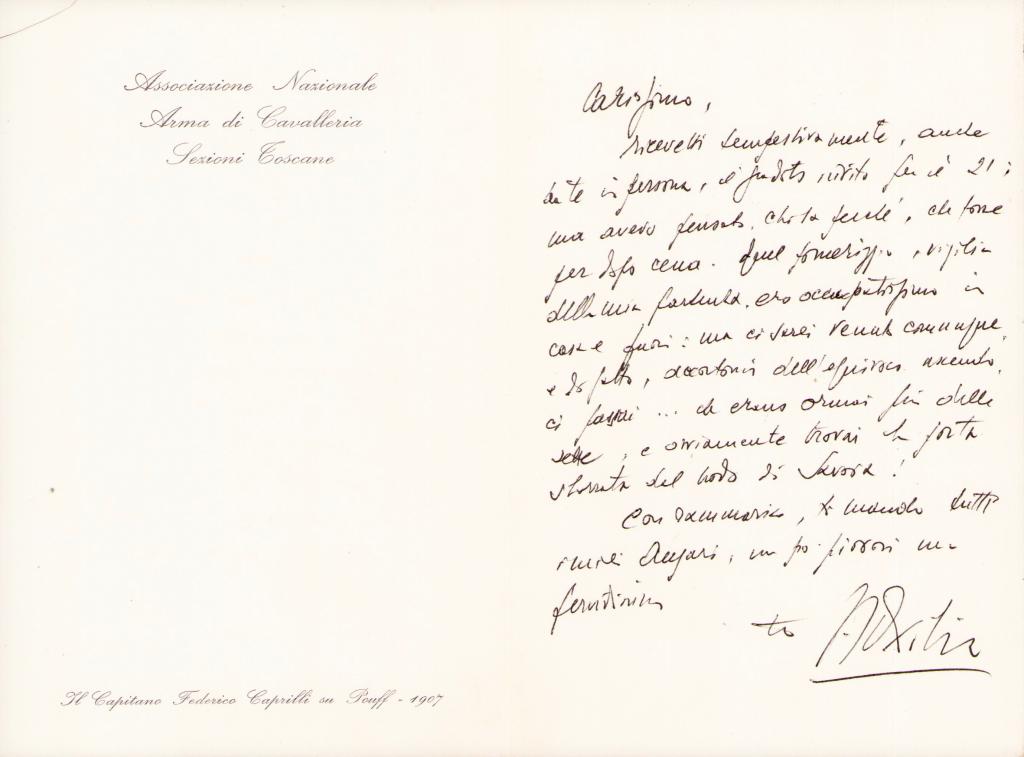 Associazione Nazionale
Arma di Cavalleria
Sezioni Toscane
Il Capitano Federico Caprilli su Pouff - 1907
Carissimo,
ricevetti tempestivamente, anche
da te in persona, il gradito invito per il 21:
ma avevo pensato, chissà perché, che fosse
per dopo cena. Quel pomeriggio, vigilia
della mia partenza, ero occupatissimo in
casa e fuori: ma ci sarei venuto comunque
e di fatto, accortomi dell'equivoco uscendo,
ci passai ... che erano ormai più delle
sette, e ovviamente trovai la porta
sbarrata dal nodo di Savoia!
Con rammarico, ti mando tutti
i miei auguri, un po' ma
fervidissimi
tuo